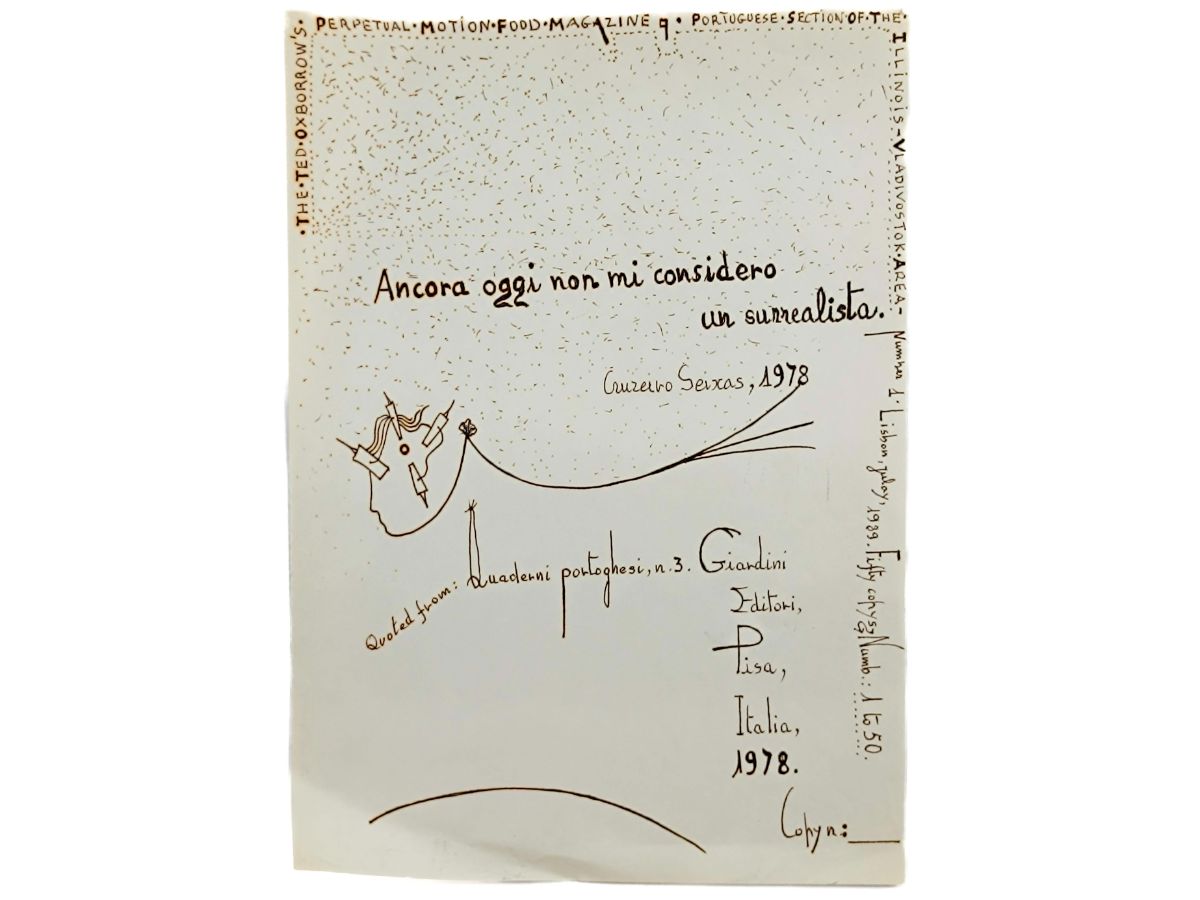 ·THE·TED·OXBORROW'S·
PERPETUAL·MOTION·FOOD·MAGAZINE q·PORTUGUESE·SECTION·OF·THE·
ILLINOIS-VLADIVOSTOK·AREA- Number 1·Lisbon, julay, 1989. Fifty copys; Numb.: 1 to 50.
Ancora oggi non mi considero
un surrealista.
Cruzeiro Seixas, 1978
Quoted from: Quaderni portoghesi, n.3. Giardini
Editori,
Pisa,
Italia,
1978.
Copy n: